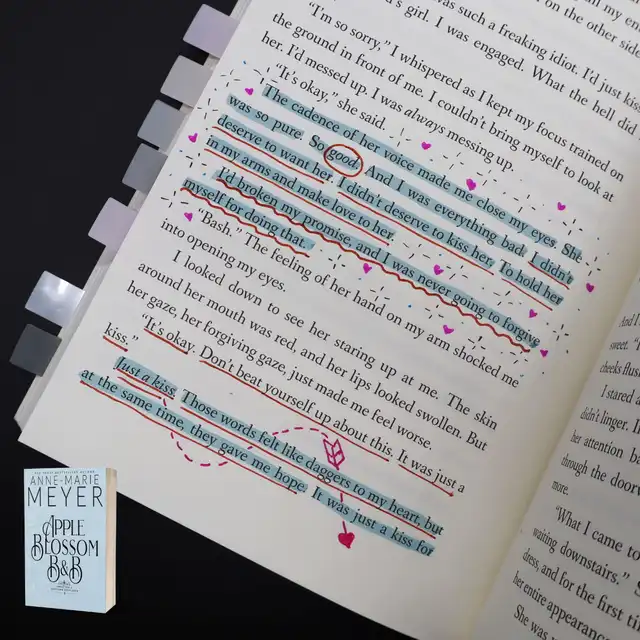 was such a freaking idiot. I'd just
girl. I was engaged. What the hell did
"I'm so sorry," I whispered as I kept my focus trained on
the ground in front of me. I couldn't bring myself to look at
her. I'd messed up. I was always messing up.
"It's okay," she said.
The cadence of her voice made me close my eyes. She
was so pure. So good. And I was everything bad. I didn't
deserve to want her. I didn't deserve to kiss her. To hold her
in my arms and make love to her.
I'd broken my promise, and I was never going to forgive
myself for doing that.
"Bash." The feeling of her hand on my arm shocked me
into opening my eyes.
I looked down to see her staring up at me. The skin
around her mouth was red, and her lips looked swollen. But
her gaze, her forgiving gaze, just made me feel worse.
"It's okay. Don't beat yourself up about this. It was just a
kiss."
Just a kiss. Those words felt like daggers to my heart, but
at the same time, they gave me hope. It was just a kiss for
And I
sweet.
cheeks flus
I stared a
didn't linger. I
her attention
through the door
more.
"What I came to
waiting downstairs."
dress, and for the first
her entire appearance
She was
ANNE-MARIE
MEYER
APPLE
BLOSSOM
B&B